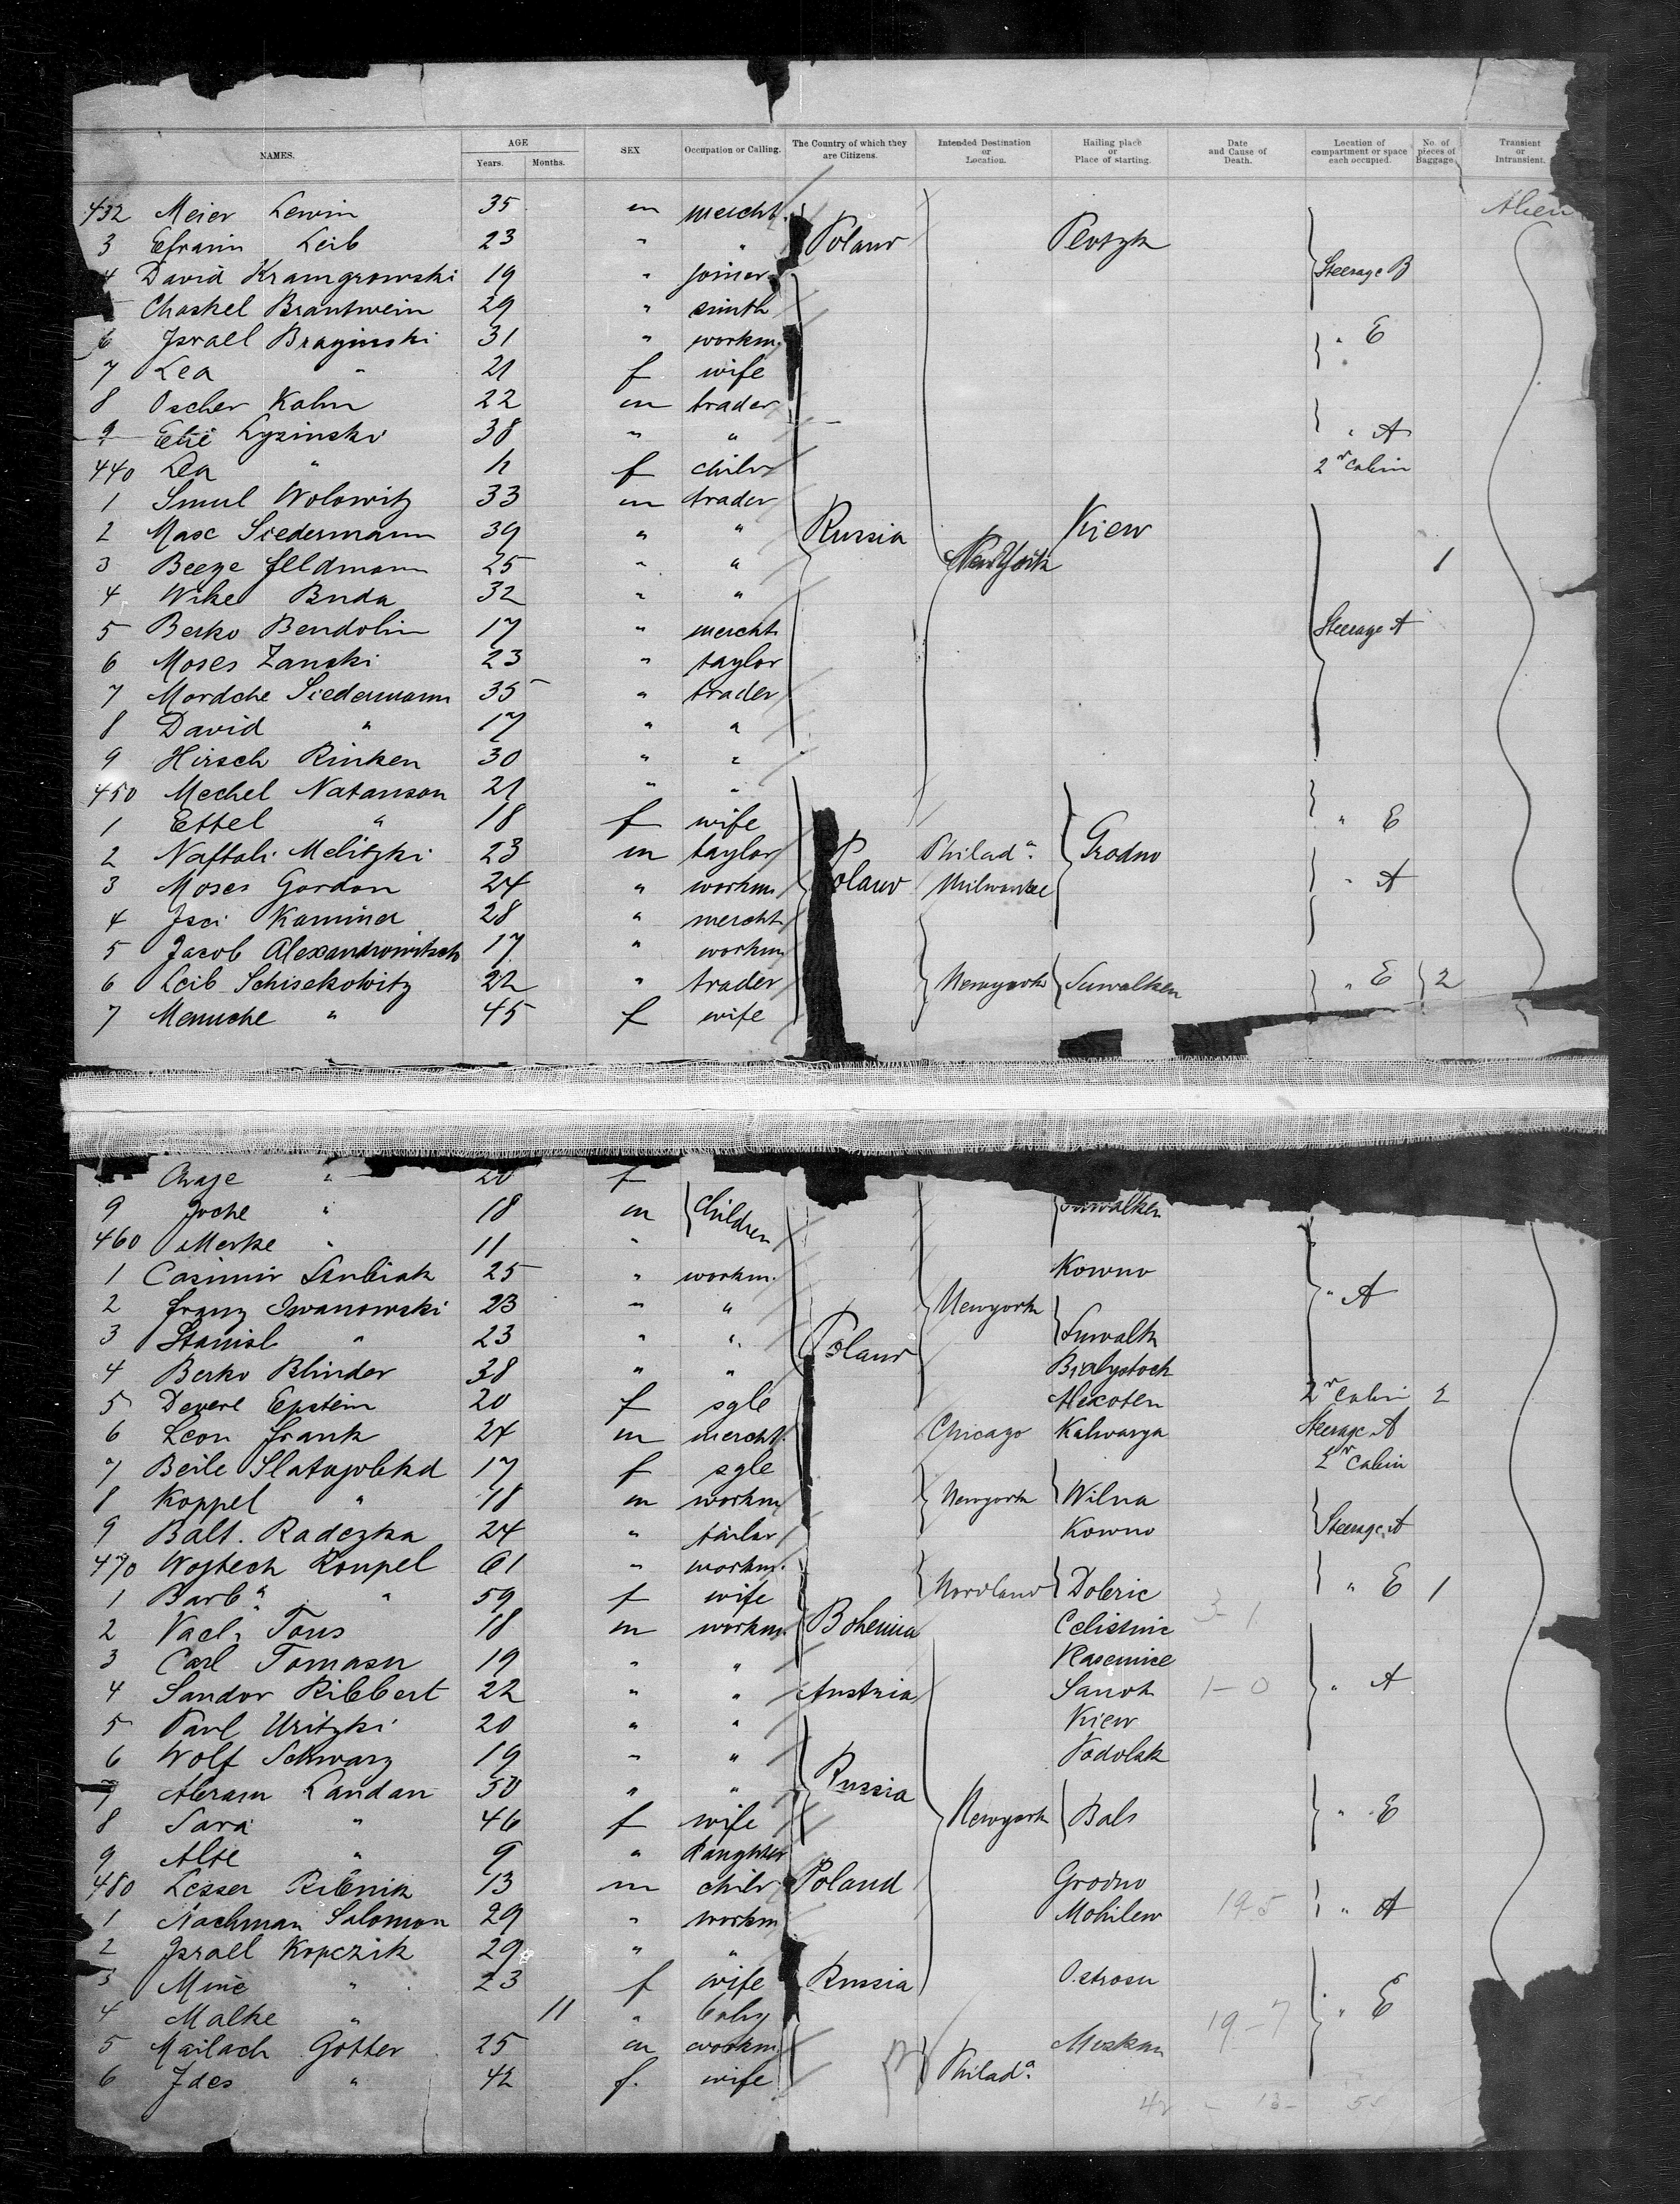 NAMES. AGE Years. Months. SEX Occupation or Calling. The Country of which they are Citizens. Intended Destination or Location. Hailing place or Place of starting. Date and Cause of Death. Location of compartment or space each occupied. No. of pieces of Baggage Transient or Intransient.
432 Meier Lewin 35 m mercht. Alien
3 Efraim Leib 23 " " Poland Plotzk
4 David Kramgrowski 19 " joiner Steerage B
Chaskel Brantwein 29 " smith
6 Israel Braginski 31 " workm. " E
7 Lea " 21 f wife
8 Oscher Kahn 22 m trader
9 Etie Lyzinski 38 " " " A
440 Lea " f child 2nd Cabin
1 Smul Wolowitz 33 m trader
2 Max Siedermann 39 " " Russia Kiew
3 Beeze Feldmann 25 " " New York 1
4 Wike Buda 32 " "
5 Berko Bendolin 17 " mercht. Steerage A
6 Moses Zanski 23 " taylor
7 Mordche Siedermann 35 " trader
8 David " 17 " "
9 Hirsch Rinken 30 " "
450 Mechel Natanson 21 " "
1 Ettel " 18 f wife " E
2 Naftali Melitzki 23 m taylor Poland Philada. Grodno
3 Moses Gordon 24 " workm. Milwaukee " A
4 Isci Kaminer 28 " mercht.
5 Jacob Alexandrowitsch 17 " workm.
6 Leib Schisekowitz 22 " trader Newyork Suwalken " E 2
7 Menuche " 45 f wife
Chaje " 20 f
9 Joche " 18 m children Suwalken
460 Merke " 11 "
1 Casimir 25 " workm. Kowno
2 Franz Iwanowski 23 " " Newyork " A
3 Stanisl " 23 " " Poland Suwalk
4 Berko Blinder 38 " " Bialystock
5 Devere Epstein 20 f sgle Alexoten 2nd Cabin 2
6 Leon Frank 24 m mercht. Chicago Kalwarya Steerage A
7 Beile 17 f sgle 2nd Cabin
8 Koppel " 18 m workm. Newyork Wilna
9 Balt. Radczka 24 " tailor Kowno Steerage A
470 Wojtech Roupel 61 " workm.
1 Barba. " 59 f wife Nordland Dobric " E 1
2 Vacl. Tous 18 m workm. Bohemia Celistnic 3-1
3 Carl Tomasu 19 " " Klasenice
4 Sandor Ribbert 22 " " Austria Sanok 1-0 " A
5 Paul Uritzki 20 " " Kiew
6 Wolf Schwarz 19 " " Podolsk
7 Abram Landau 50 " " Russia
8 Sara " 46 f wife Newyork Bals " E
9 Alte " 9 " Daughter
480 Lesser Ribnik 13 m child Poland Grodno
1 Nachman Salomon 29 " workm. Mohilew 19-5 " A
2 Israel Kopczik 29 " "
3 Mine " 23 f wife Russia Ostrosu
4 Malke " 11 " baby 19-7 " E
5 Mailach Gotter 25 m workm. Moskau
6 Ides " 42 f. wife Philada.
42 - 13- 55